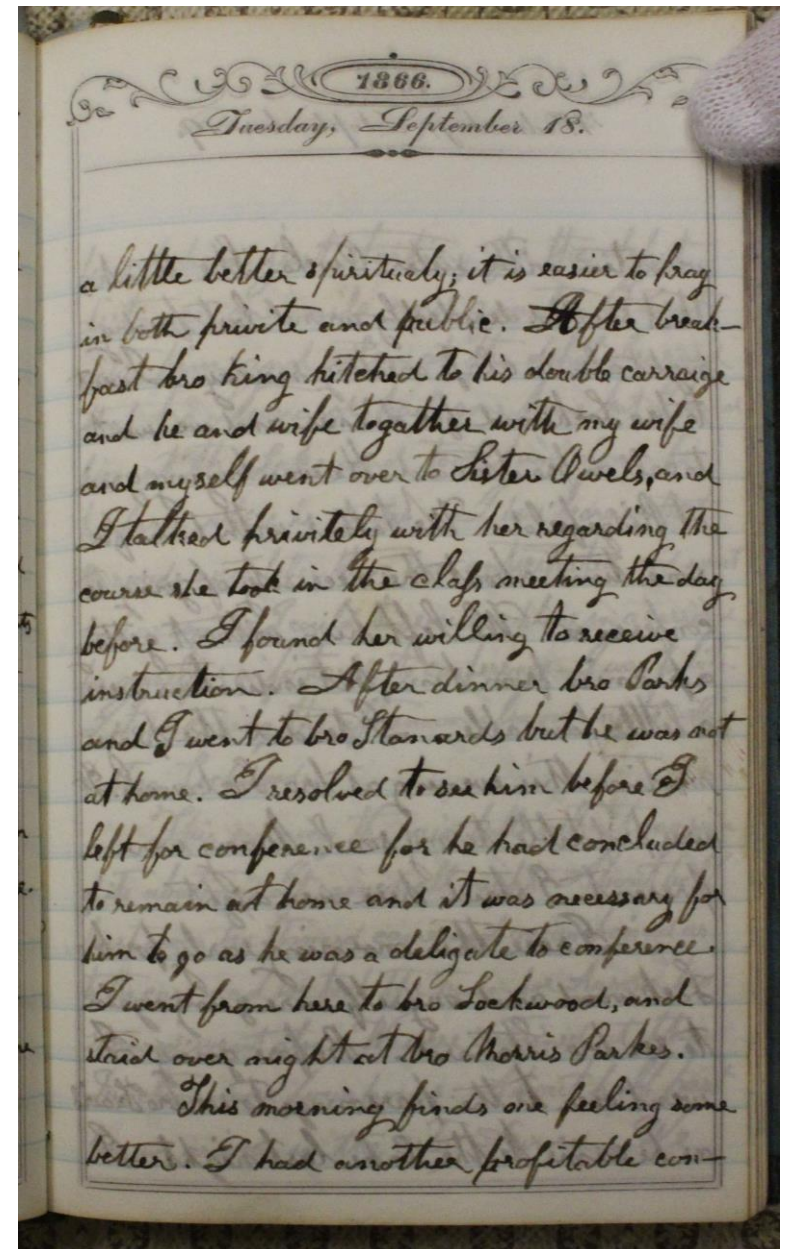 1866.
Tuesday, September 18.
a little better spiritualy; it is easier to pray
in both privite and public. After break-
fast bro King hitched to his double carraige
and he and wife togather with my wife
and myself went over to Sister Owels, and
I talked privitely with her regarding the
course she took in the class meeting the day
before. I found her willing to receive
instruction. After dinner bro Parks
and I went to bro Stanards but he was not
at home. I resolved to see him before I
left for conference for he had concluded
to remain at home and it was necessary for
him to go as he was a deligate to conference.
I went from here to bro Lockwood, and
staid over night at bro Morris Parkes.
This morning finds me feeling some
better. I had another profitable con-